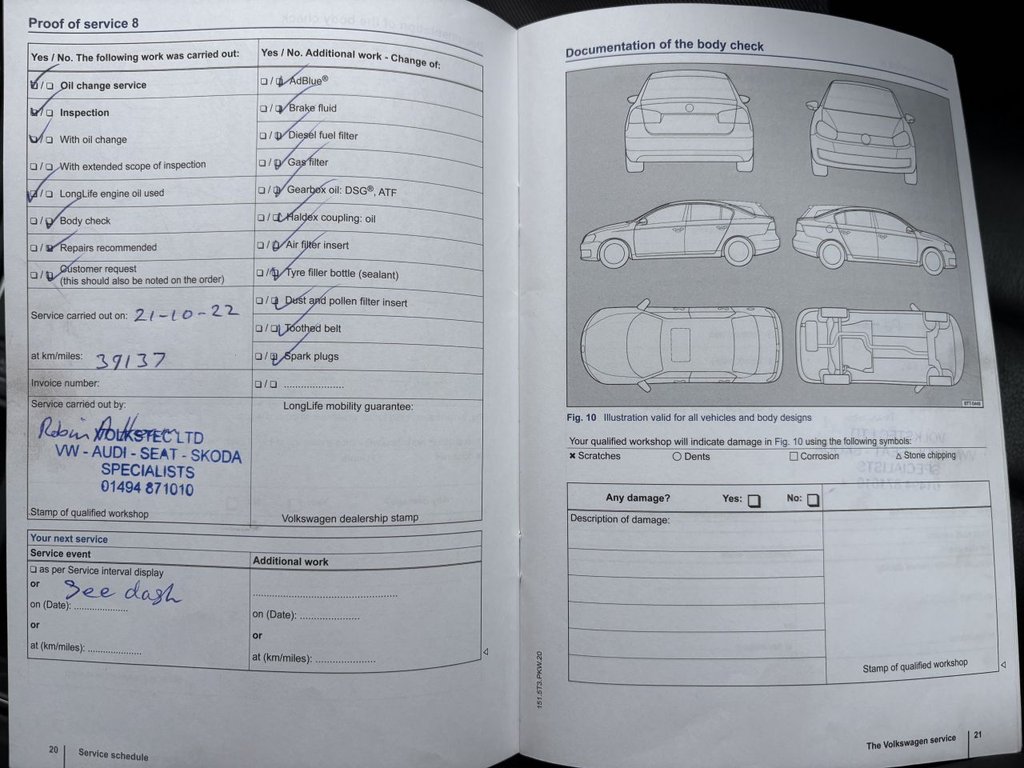 Proof of service 8
Yes / No. The following work was carried out:
☑ / ☐ Oil change service
☑ / ☐ Inspection
☑ / ☐ With oil change
☐ / ☑ With extended scope of inspection
☑ / ☐ LongLife engine oil used
☐ / ☑ Body check
☐ / ☑ Repairs recommended
☐ / ☑ Customer request
(this should also be noted on the order)
Service carried out on: 21-10-22
at km/miles: 39137
Invoice number:
Service carried out by:
Robin
VOLKSTEC LTD
VW - AUDI - SEAT - SKODA
SPECIALISTS
01494 871010
Stamp of qualified workshop
Yes / No. Additional work - Change of:
☐ / ☑ AdBlue®
☐ / ☑ Brake fluid
☐ / ☑ Diesel fuel filter
☐ / ☑ Gas filter
☐ / ☑ Gearbox oil: DSG®, ATF
☐ / ☑ Haldex coupling: oil
☐ / ☑ Air filter insert
☐ / ☑ Tyre filler bottle (sealant)
☐ / ☑ Dust and pollen filter insert
☐ / ☑ Toothed belt
☐ / ☑ Spark plugs
☐ / ☐ .....................
LongLife mobility guarantee:
Volkswagen dealership stamp
Your next service
Service event
☐ as per Service interval display
or See dash
on (Date): ...................
or
at (km/miles): ...................
Additional work
..................................................
on (Date): .....................
or
at (km/miles): .....................
20 Service schedule
Documentation of the body check
BTT-0448
Fig. 10 Illustration valid for all vehicles and body designs
Your qualified workshop will indicate damage in Fig. 10 using the following symbols:
✖ Scratches ○ Dents □ Corrosion △ Stone chipping
Any damage? Yes: ☐ No: ☐
Description of damage:
Stamp of qualified workshop
151.5T3.PKW.20
The Volkswagen service 21